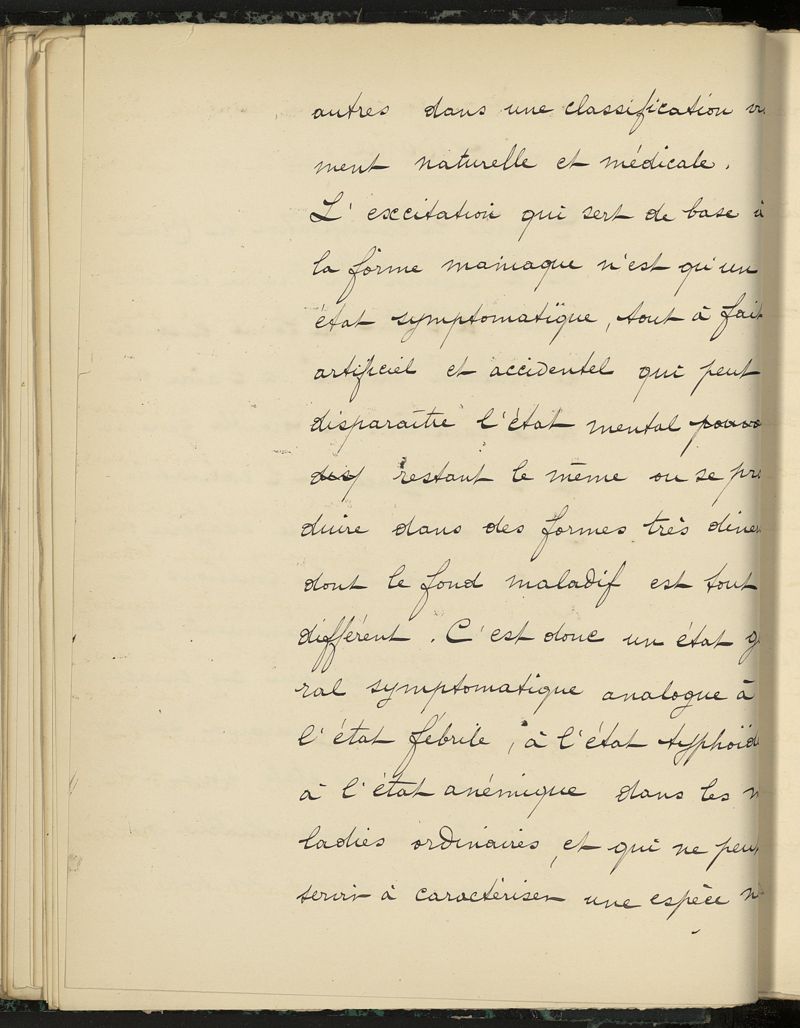 autres dans une classification
ment naturelle et médicale.
L'excitation qui sert de base à
la forme maniaque n'est qu'un
état symptomatique, tout à fait
artificiel et accidentel qui peut
disparaître l'état mental
restant le même ou se pro
duire dans des formes très
dont le fond maladif est tout
différent. C'est donc un état
ral symptomatique analogue à
l'état fébrile, à l'état typhoïde
à l'état anémique dans les
ladies ordinaires, et qui ne peut
servir à caractériser une espèce